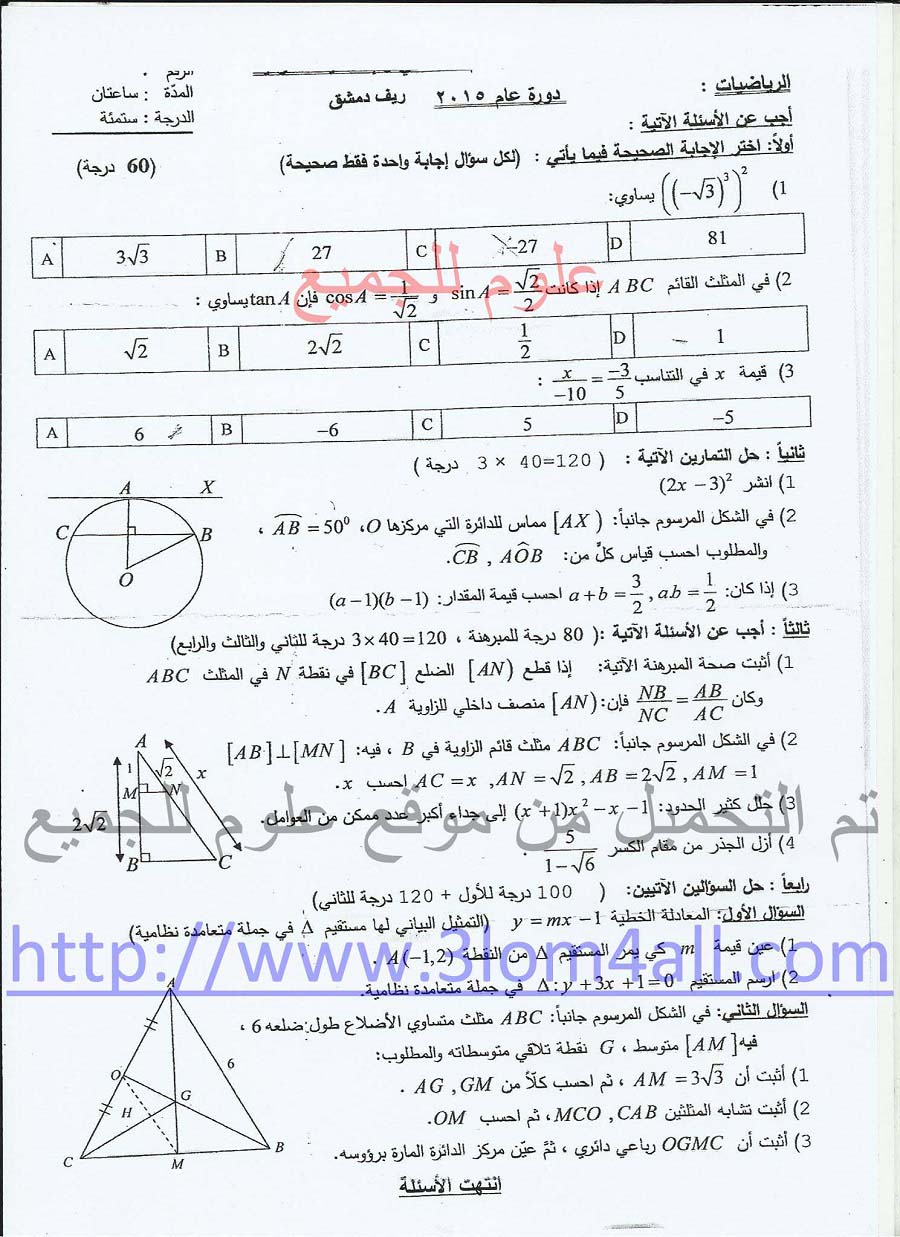 الرياضيات :
دورة عام ٢٠١٥ ريف دمشق
المدّة : ساعتان
الدرجة : ستمئة
أجب عن الأسئلة الآتية :
أولاً: اختر الإجابة الصحيحة فيما يأتي : (لكل سؤال إجابة واحدة فقط صحيحة) (60 درجة)
1) ((-√3)³)² يساوي:
A 3√3 B 27 C -27 D 81
علوم للجميع
2) في المثلث القائم ABC إذا كانت sin A = √2/2 و cos A = 1/√2 فإن tan A يساوي :
A √2 B 2√2 C 1/2 D 1
3) قيمة x في التناسب x/-10 = -3/5 :
A 6 B -6 C 5 D -5
ثانياً : حل التمارين الآتية : ( 3 × 40=120 درجة )
1) انشر (2x - 3)²
2) في الشكل المرسوم جانباً: [AX) مماس للدائرة التي مركزها O، AB = 50⁰ ،
والمطلوب احسب قياس كلٍّ من: CB , AOB.
3) إذا كان: a+b = 3/2 , ab = 1/2 احسب قيمة المقدار: (a-1)(b-1)
A X
C B
O
ثالثاً : أجب عن الأسئلة الآتية :( 80 درجة للمبرهنة ، 3×40=120 درجة للثاني والثالث والرابع)
1) أثبت صحة المبرهنة الآتية: إذا قطع [AN) الضلع [BC] في نقطة N في المثلث ABC
وكان NB/NC = AB/AC فإن: [AN) منصف داخلي للزاوية A.
2) في الشكل المرسوم جانباً: ABC مثلث قائم الزاوية في B ، فيه: [AB]⊥[MN]
AC = x , AN = √2 , AB = 2√2 , AM = 1 احسب x.
3) حلل كثير الحدود: (x+1)x² - x - 1 إلى جداء أكبر عدد ممكن من العوامل.
4) أزل الجذر من مقام الكسر 5/(1-√6) .
A
1 √2 x
M N
2√2
B C
تم التحميل من موقع علوم للجميع
رابعاً : حل السؤالين الآتيين: ( 100 درجة للأول + 120 درجة للثاني)
السؤال الأول: المعادلة الخطية y = mx - 1 (التمثيل البياني لها مستقيم Δ في جملة متعامدة نظامية)
1) عين قيمة m كي يمر المستقيم Δ من النقطة A(-1,2) .
http://www.3lom4all.com
2) ارسم المستقيم Δ: y + 3x + 1 = 0 في جملة متعامدة نظامية.
السؤال الثاني: في الشكل المرسوم جانباً: ABC مثلث متساوي الأضلاع طول ضلعه 6 ،
فيه [AM] متوسط ، G نقطة تلاقي متوسطاته والمطلوب:
1) أثبت أن AM = 3√3 ، ثم احسب كلّاً من AG , GM .
2) أثبت تشابه المثلثين MCO , CAB ، ثم احسب OM.
3) أثبت أن OGMC رباعي دائري ، ثمَّ عيّن مركز الدائرة المارة برؤوسه.
A
6
O
G
H
C M B
انتهت الأسئلة